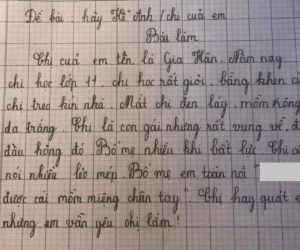 Đề bài : hãy kể Anh / chị của em
Bài làm
Chị của em tên là Gia Hân. Năm nay
chị học lớp 11. chị học rất giỏi, bằng khen củ
chị treo kín nhà. Mắt chị đen láy, mồm không
da trắng. Chị là con gái nhưng rất vụng về. đ
đầu hỏng đó. Bố mẹ nhiều khi bất lực. Chị c
nói nhiều lẻo mép. Bố mẹ em toàn nói "
được cái mồm miệng chân tay". Chị hay quát e
nhưng em vẫn yêu chị lắm!